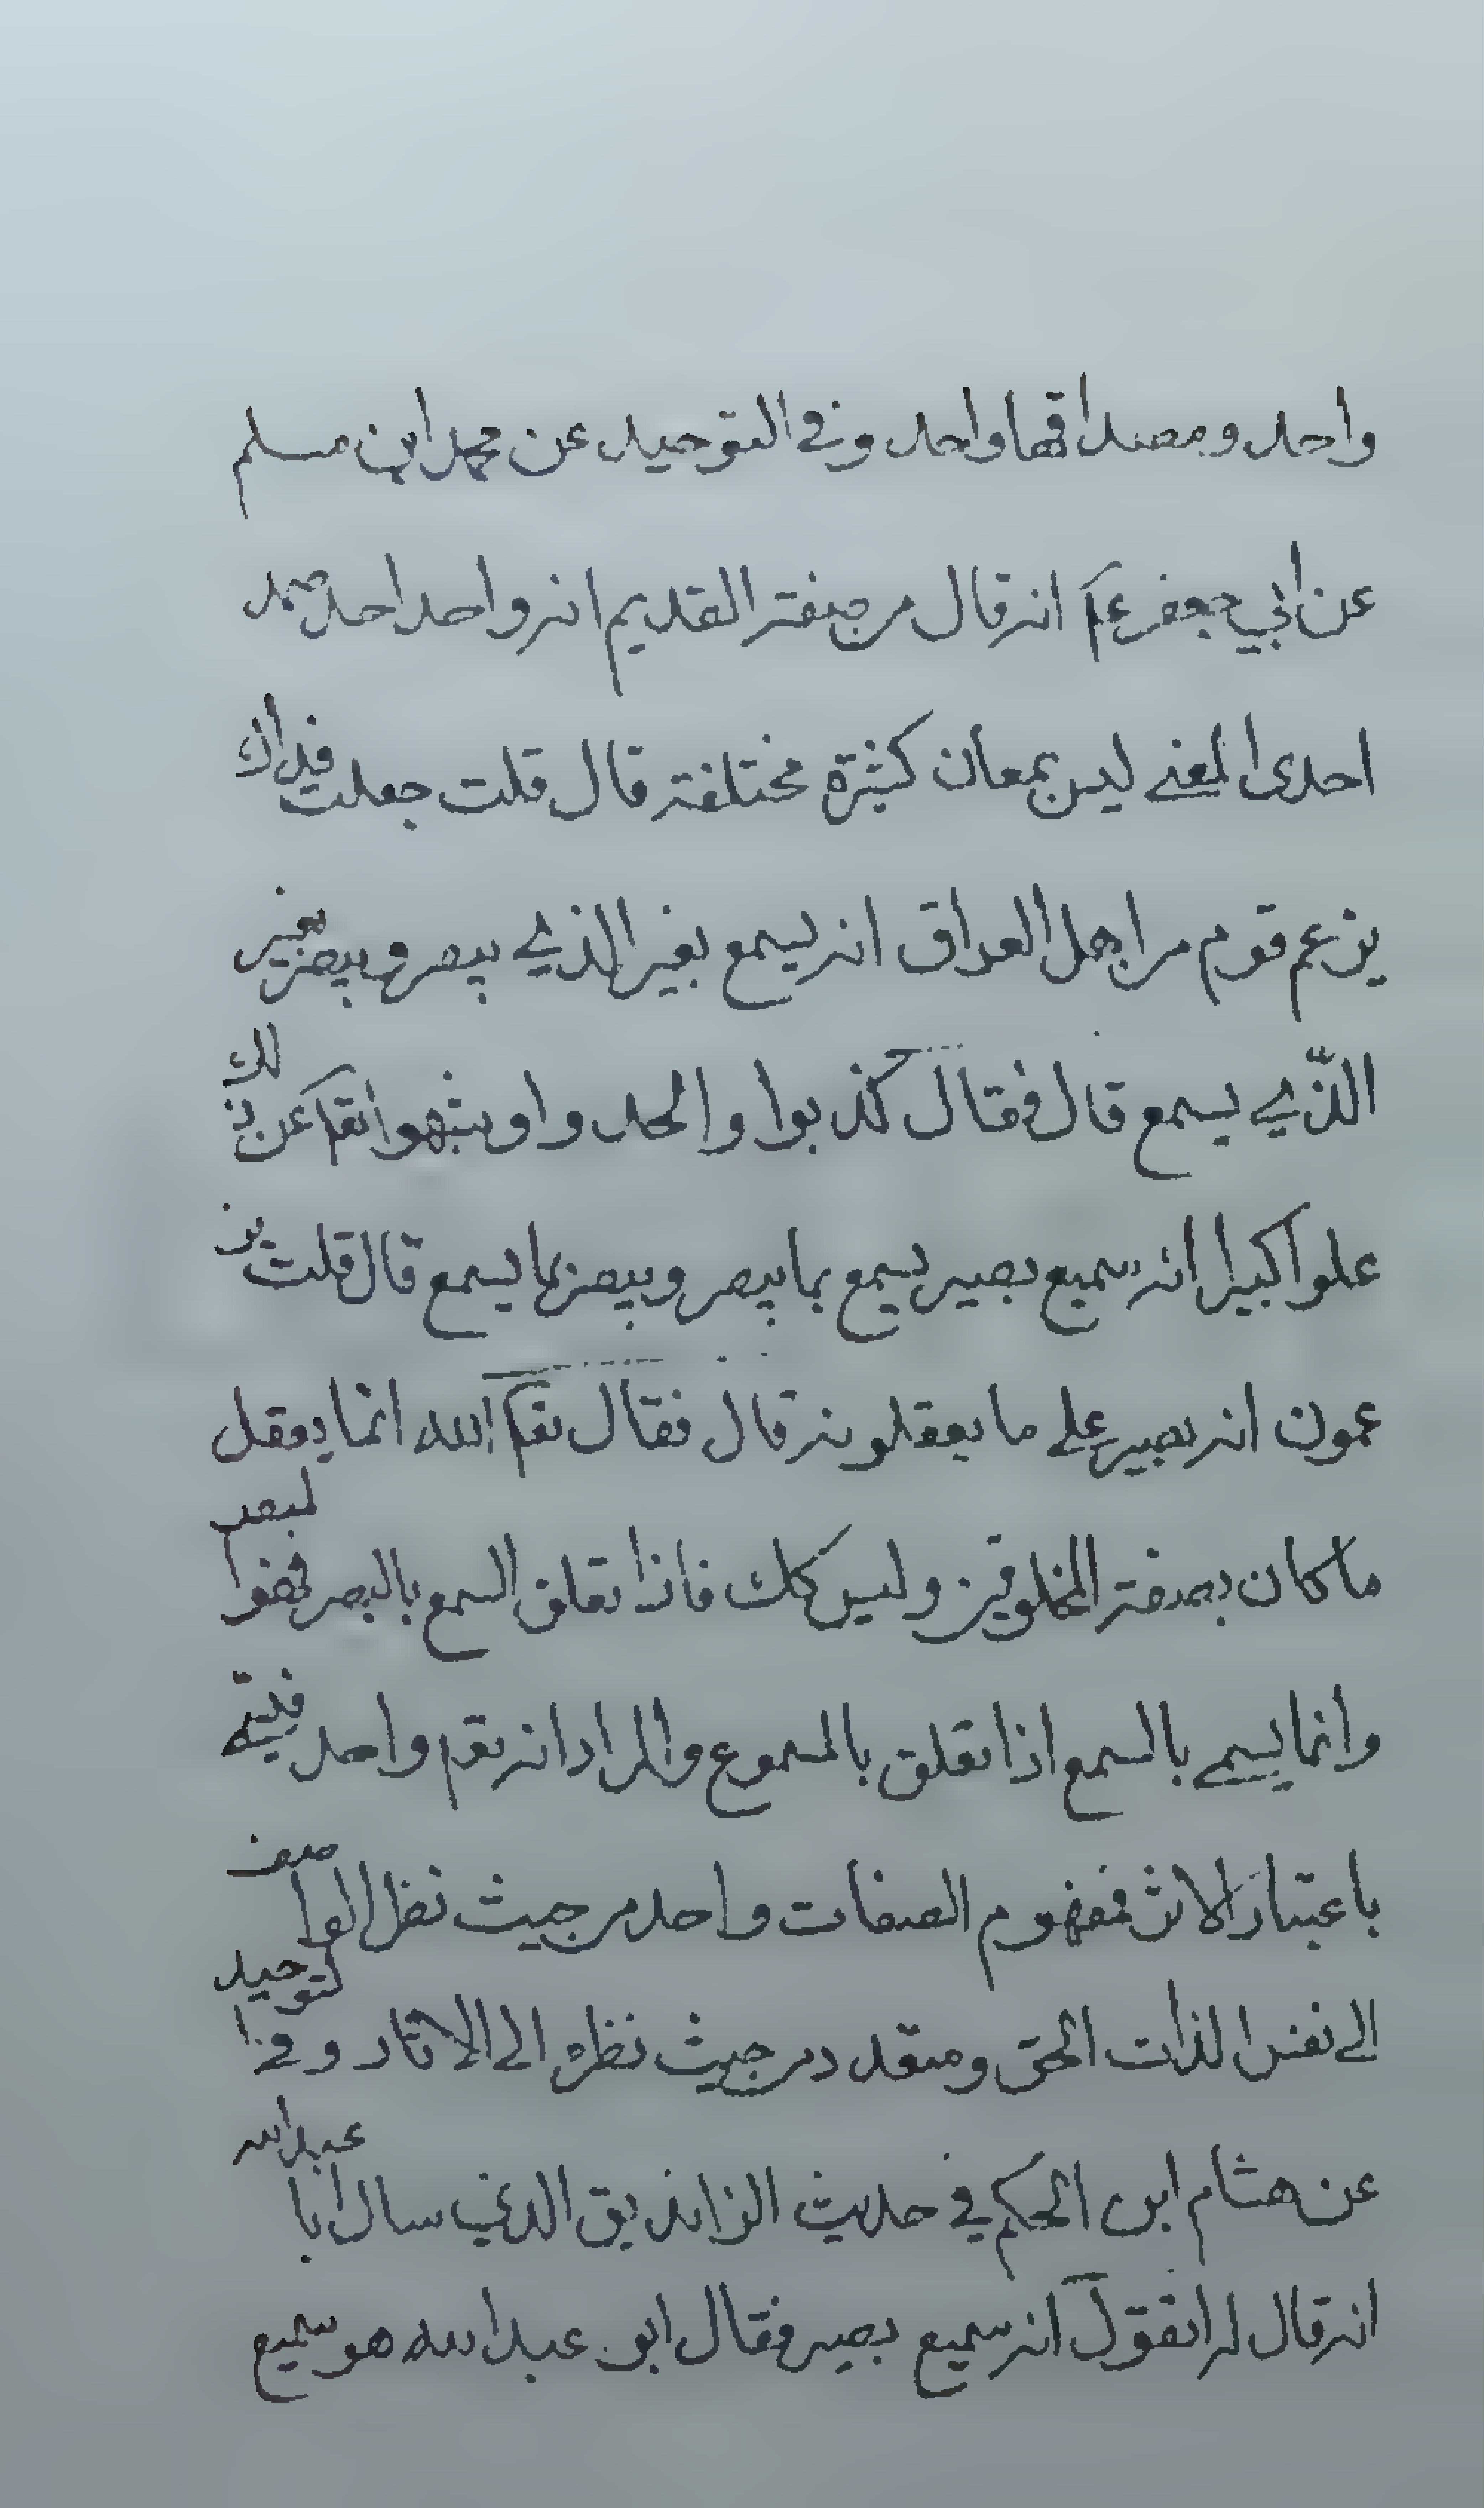 واحد ومصداقها واحد وفي التوحيد عن محمد ابن مسلم
عن ابي جعفر عم انه قال من صفة القديم انه واحد احد صمد
احدى المعنى ليس بمعان كثيرة مختلفة قال قلت جعلت فداك
يزعم قوم من اهل العراق انه يسمع بغير الذي يبصر ويبصر بغير
الذّي يسمع قال فقال كذبوا والحدوا وشبهوا تعا عن ذلك
علوا كبيرا انه سميع بصير يسمع بما يبصر ويبصر بما يسمع قال قلت يز
عمون انه بصير على ما يعقلونه قال فقال تعا الله انما يعقل
ما كان بصفة المخلوقين وليس كك فاذا تعلق السمع بالبصر فهو المبصر
وانما يسمى بالسمع اذا تعلق بالمسموع والمراد انه تعم واحد فيتّه
باعتبار الاثر فمفهوم الصفات واحد من حيث نظر الواصف
الى نفس الذات الحق ومتعدد من حيث نظره الى الاثار وفي التوحيد
عن هشام ابن الحكم في حديث الزانديق الذي سال ابا عبد الله
انه قال له اتقول انه سميع بصير فقال ابو عبد الله هو سميع